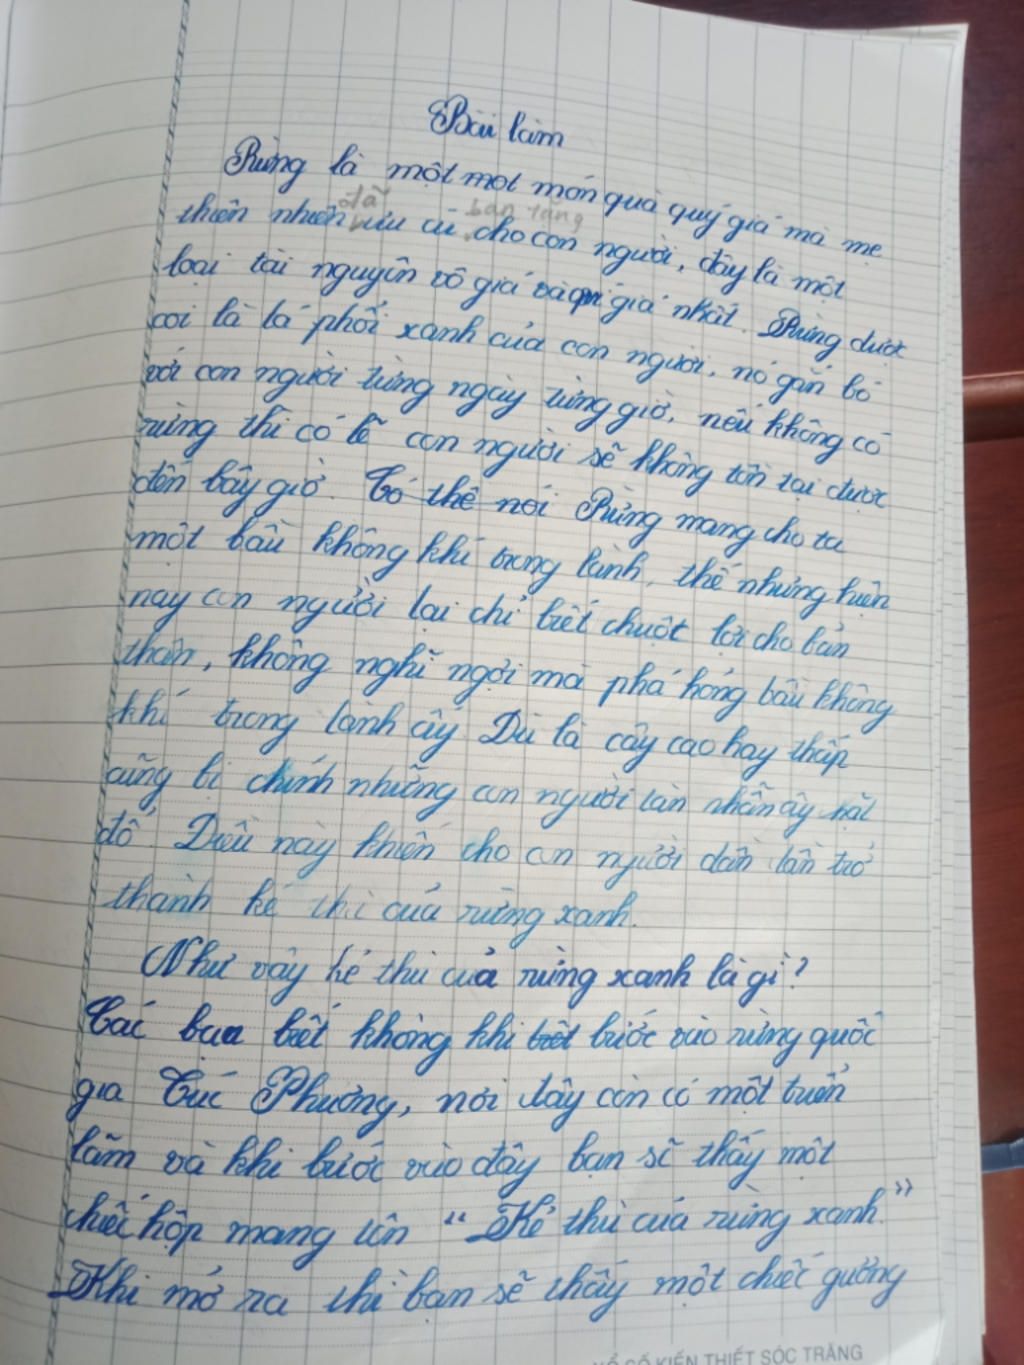 Bài làm
Rừng là một một món quà quý giá mà mẹ
đã ban tặng
thiên nhiên ưu ái cho con người, đây là một
loại tài nguyên vô giá và quí giá nhất. Rừng được
coi là lá phổi xanh của con người, nó gắn bó
với con người từng ngày từng giờ, nếu không có
rừng thì có lẽ con người sẽ không tồn tại được
đến bây giờ. Có thể nói Rừng mang cho ta
một bầu không khí trong lành, thế nhưng hiện
nay con người lại chỉ biết chuột lợi cho bản
thân, không nghĩ ngợi mà phá hỏng bầu không
khí trong lành ấy. Dù là cây cao hay thấp
cũng bị chính những con người tàn nhẫn ấy chặt
đổ. Điều này khiến cho con người dần dần trở
thành kẻ thù của rừng xanh.
Như vậy kẻ thù của rừng xanh là gì?
Các bạn biết không khi biết bước vào rừng quốc
gia Cúc Phương, nơi đây còn có một triển
lãm và khi bước vào đây bạn sẽ thấy một
chiếc hộp mang tên "Kẻ thù của rừng xanh."
Khi mở ra thì bạn sẽ thấy một chiếc gương
SỐ KIẾN THIẾT SÓC TRĂNG